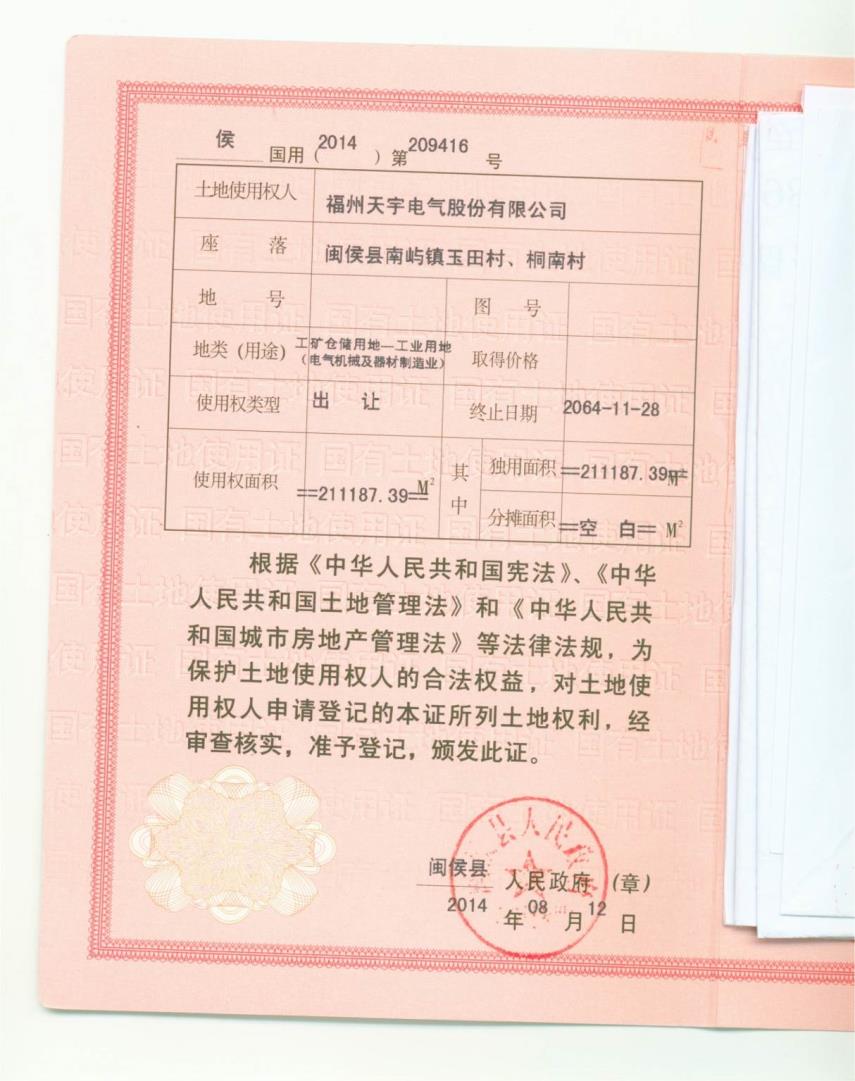 侯 国用（2014）第209416号
土地使用权人 福州天宇电气股份有限公司
座 落 闽侯县南屿镇玉田村、桐南村
地 号 图 号
地类（用途） 工矿仓储用地—工业用地（电气机械及器材制造业） 取得价格
使用权类型 出 让 终止日期 2064-11-28
使用权面积 ==211187.39== M² 其中 独用面积 ==211187.39== M²
分摊面积 ==空 白== M²
根据《中华人民共和国宪法》、《中华
人民共和国土地管理法》和《中华人民共
和国城市房地产管理法》等法律法规，为
保护土地使用权人的合法权益，对土地使
用权人申请登记的本证所列土地权利，经
审查核实，准予登记，颁发此证。
闽侯县 人民政府（章）
2014 年 08 月 12 日